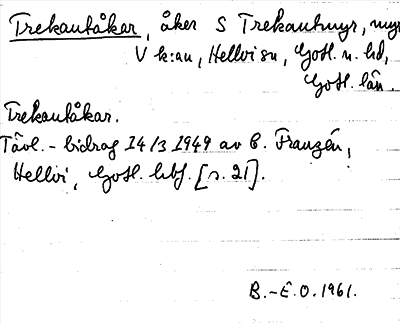 Trekantåker, åker S Trekantmyr, myr
V k:an, Hellvi sn, Gotl. n. hd,
Gotl. län.
Trekantåkar.
Tävl.-bidrag 14/3 1949 av E. Franzén,
Hellvi, Gotl. hbf. [s. 21].
B.-E. O. 1961.